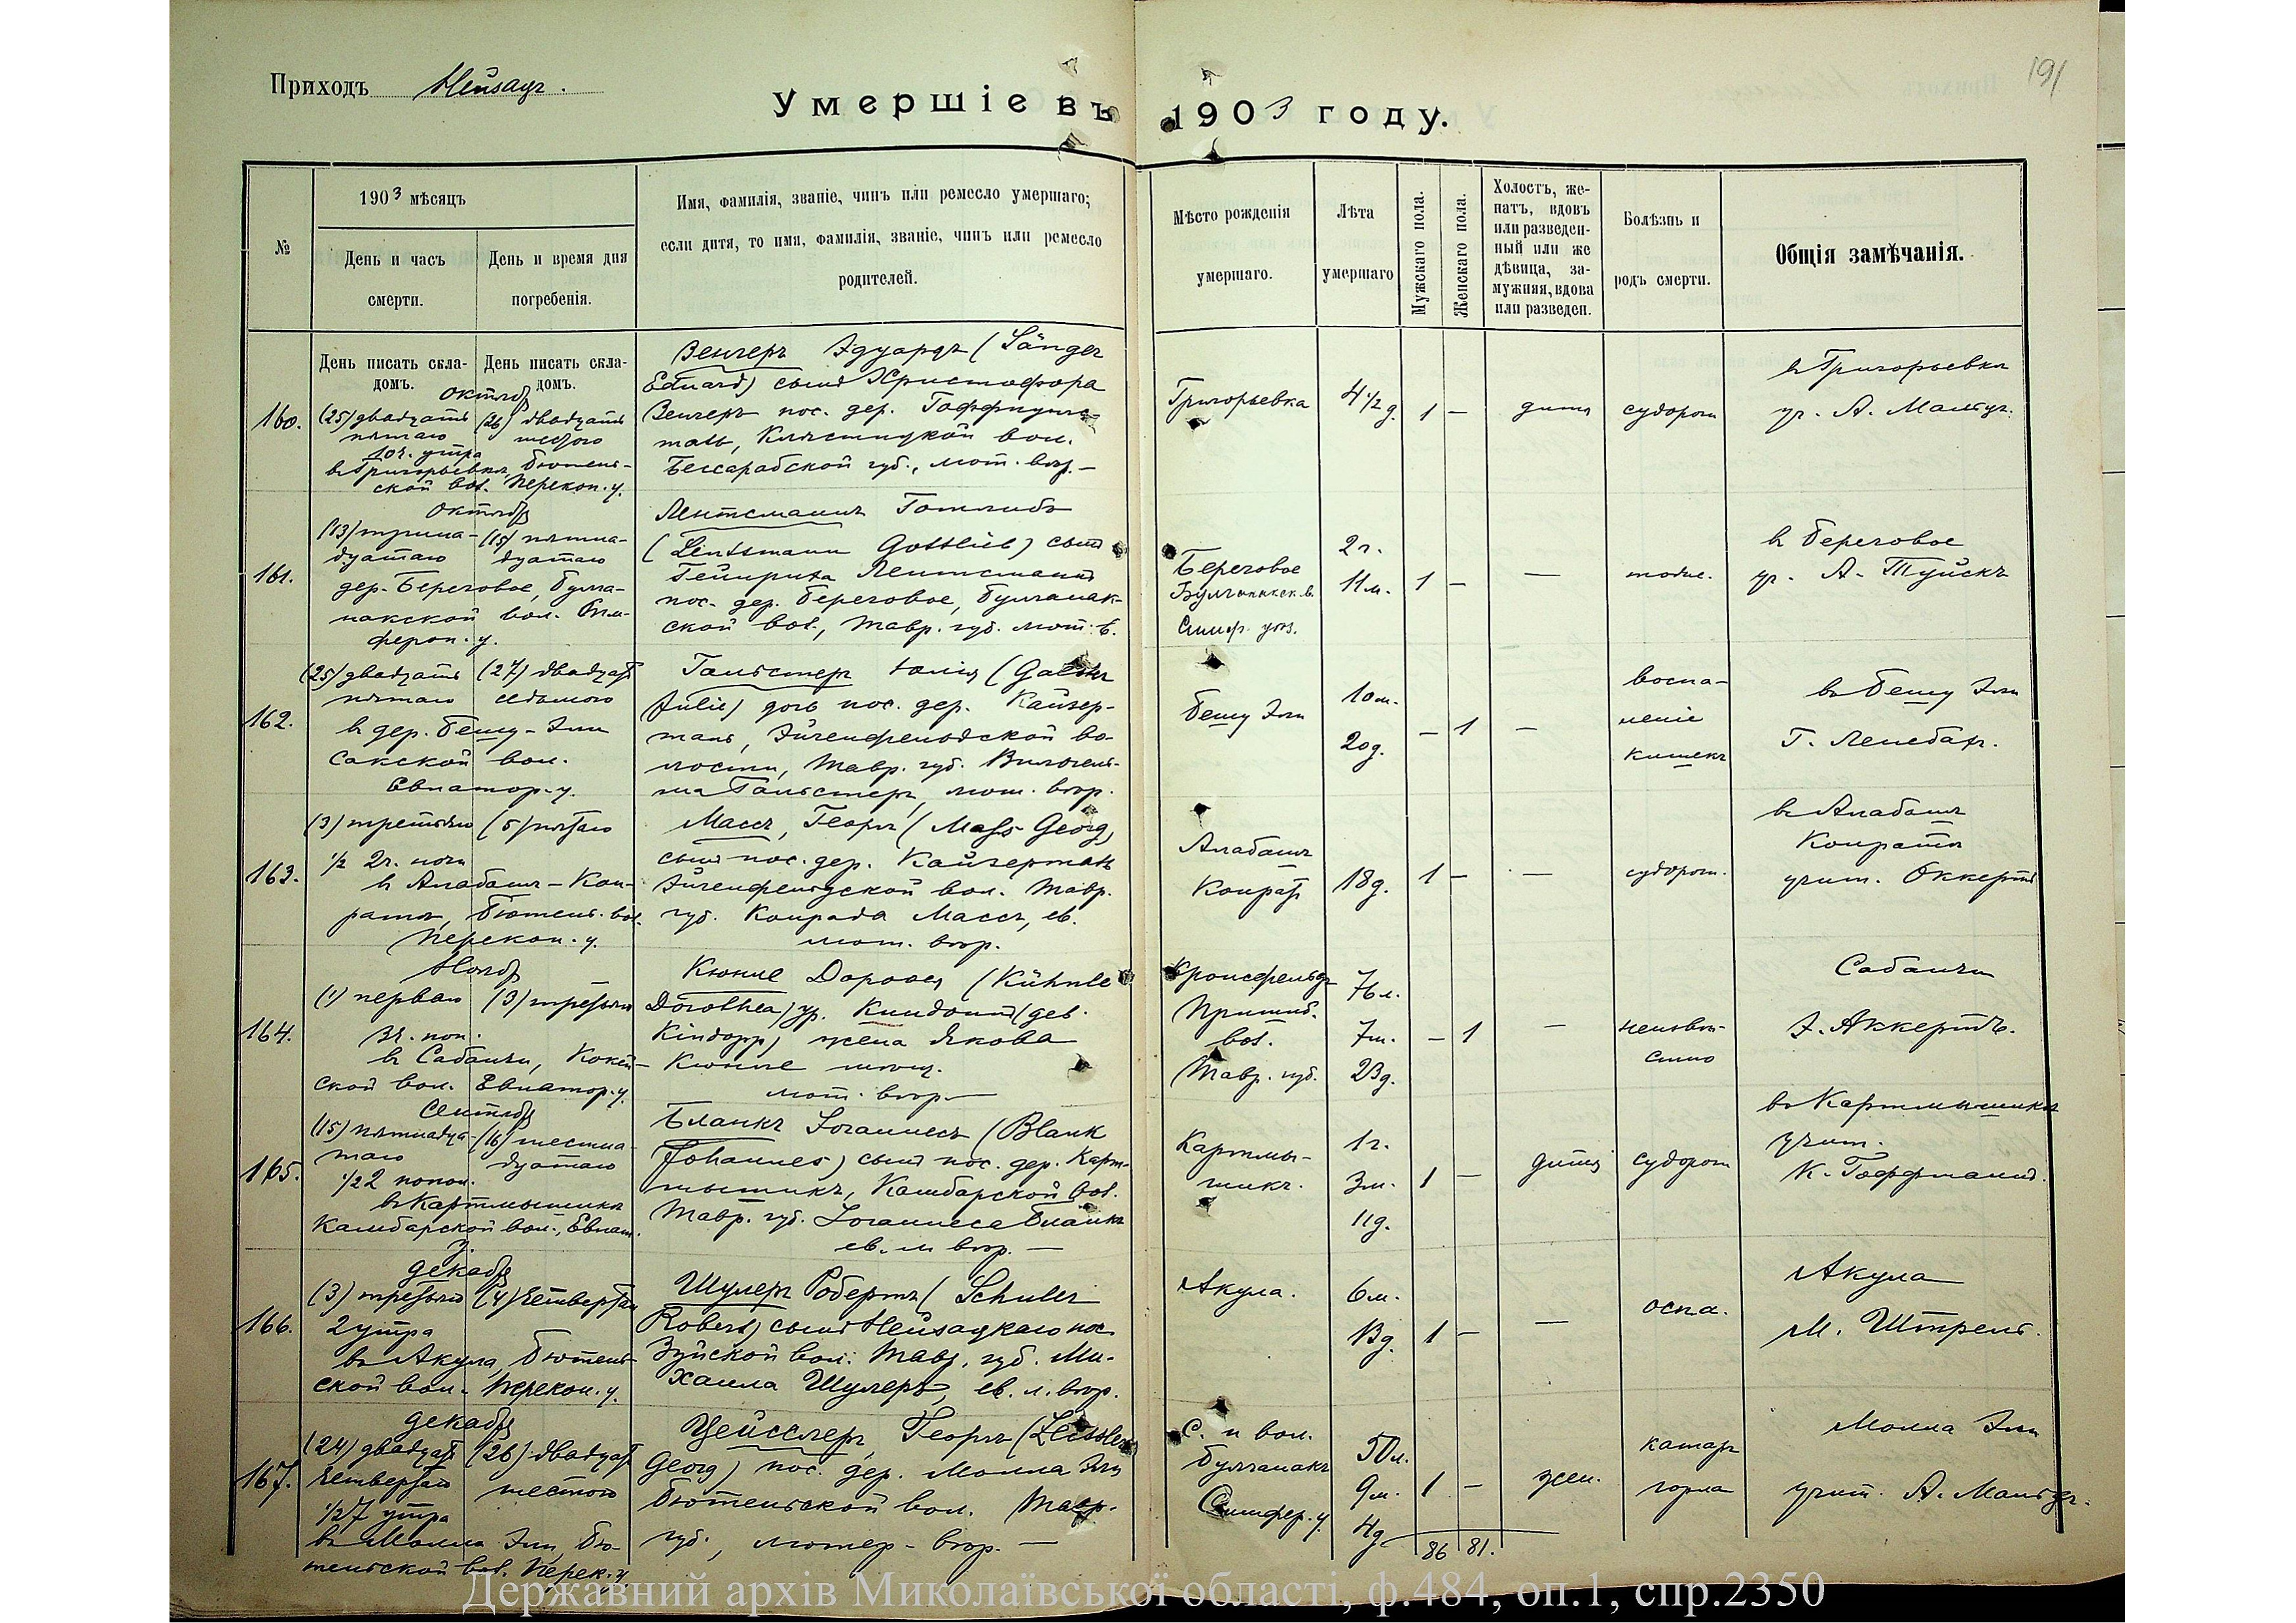 Приходъ Нейзацъ.
191
Умершіе въ 1903 году.
№
1903 мѣсяцъ
День и часъ смерти.
День и время дня погребенія.
Имя, фамилія, званіе, чинъ или ремесло умершаго;
если дитя, то имя, фамилія, званіе, чинъ или ремесло
родителей.
Мѣсто рожденія
умершаго.
Лѣта
умершаго
Мужскаго пола.
Женскаго пола.
Холостъ, же-
натъ, вдовъ
или разведен-
ный или же
дѣвица, за-
мужняя, вдова
или разведен.
Болѣзнь и
родъ смерти.
Общія замѣчанія.
День писать скла-
домъ.
День писать скла-
домъ.
160.
Октяб
(25) двадцать (26) двадцать
пятаго шестого
10 ч. утра
въ Григорьевкѣ, Бютень-
ской вол. Перекоп. у.
Зенгеръ Эдуардъ (Sänger
Eduard) сынъ Христофора
Зенгеръ пос. дер. Гоффнунгс-
таль, Клястицкой вол.
Бессарабской губ., лют. вѣр. —
Григорьевка
4 1/2 д.
1 —
дитя
судорог
въ Григорьевкѣ
уч. А. Мангъ.
161.
Октяб
(13) трина- (15) пятна-
дцатаго дцатаго
дер. Береговое, Булга-
накской вол. Сим-
фероп. у.
Лентсманъ Готлибъ
(Lentsmann Gottlieb) сынъ
Гейнриха Лентсманъ
пос. дер. Береговое, Булганак-
ской вол., Тавр. губ. лют. в.
Береговое
Булганакск. в.
Симф. уѣз.
2 г.
11 м.
1 —
—
въ Береговое
уч. А. Туйскъ
162.
(25) двадцать (27) двадцат
пятаго седьмого
въ дер. Бешу-Эли
Сакской вол.
Евпатор. у.
Гальстеръ Юлія (Galster
Julie) дочь пос. дер. Кайзер-
таль, Эйгенфельдской во-
лости, Тавр. губ. Вильгель-
ма Гальстеръ, лют. вѣр.
Бешу Эли
10 м.
20 д.
— 1
—
воспа-
леніе
кишекъ
въ Бешу Эли
163.
(3) третьяго (5) пятаго
1/2 2 ч. ночи
въ Алабашъ-Кон-
ратъ, Бютень. вол.
Перекоп. у.
Массъ, Георгъ (Mass Georg)
сынъ пос. дер. Кайзерталь
Эйгенфельдской вол. Тавр.
губ. Конрада Массъ, ев.
лют. вѣр.
Алабашъ
Конрат
18 д.
1 —
—
судорог.
въ Алабашъ
Конратъ
учит. Оккертъ
164.
Нояб
(1) перваго (3) третьяго
3 ч. поп.
въ Сабанчи, Кокей-
ской вол. Евпатор. у.
Кюнле Доротея (Kühnle
Dorothea) ур. Киндопп (geb.
Kindopp) жена Якова
Кюнле
лют. вѣр —
Кронсфельдъ
Пришиб.
вол.
Тавр. губ.
76 л.
7 м.
23 д.
— 1
—
неизвѣ-
стно
Сабанчи
Э. Аккертъ.
165.
Сентяб
(15) пятнадца- (16) шестна-
таго дцатаго
1/2 2 попол.
въ Картмышикъ
Камбарской вол., Евпат.
у.
Бланкъ Іоганнесъ (Blank
Johannes) сынъ пос. дер. Карт-
мышикъ, Камбарской вол.
Тавр. губ. Іоганнеса Бланкъ
ев. л. вѣр. —
Картмы-
шикъ.
1 г.
3 м.
11 д.
1 —
дитя
судорог
въ Картмышикѣ
учит.
К. Гоффманъ.
166.
декаб
(3) третьяго (4) четвертаг
2 утра
въ Акула, Бютень-
ской вол. Перекоп. у.
Шулеръ Робертъ (Schuler
Robert) сынъ Нейзацкаго пос.
Зуйской вол. Тавр. губ. Ми-
хаила Шулеръ, ев. л. вѣр.
Акула.
6 м.
13 д.
1 —
—
оспа.
Акула
М. Штрель.
167.
декаб
(24) двадцат (26) двадцат
четвертаго шестого
1/2 7 утра
въ Молла Эли, Бю-
теньской вол. Перек. у.
Цейсслеръ, Георгъ (Zeissler
Georg) пос. дер. Молла Эли
Бютеньской вол. Тавр.
губ., лютер. вѣр. —
С. и вол.
Булганакъ
Симфер. у.
50 л.
9 м.
4 д
1 —
жен.
катаръ
горла
Молла Эли
учит. А. Мангъ.
86 81.
Державний архів Миколаївської області, ф.484, оп.1, спр.2350